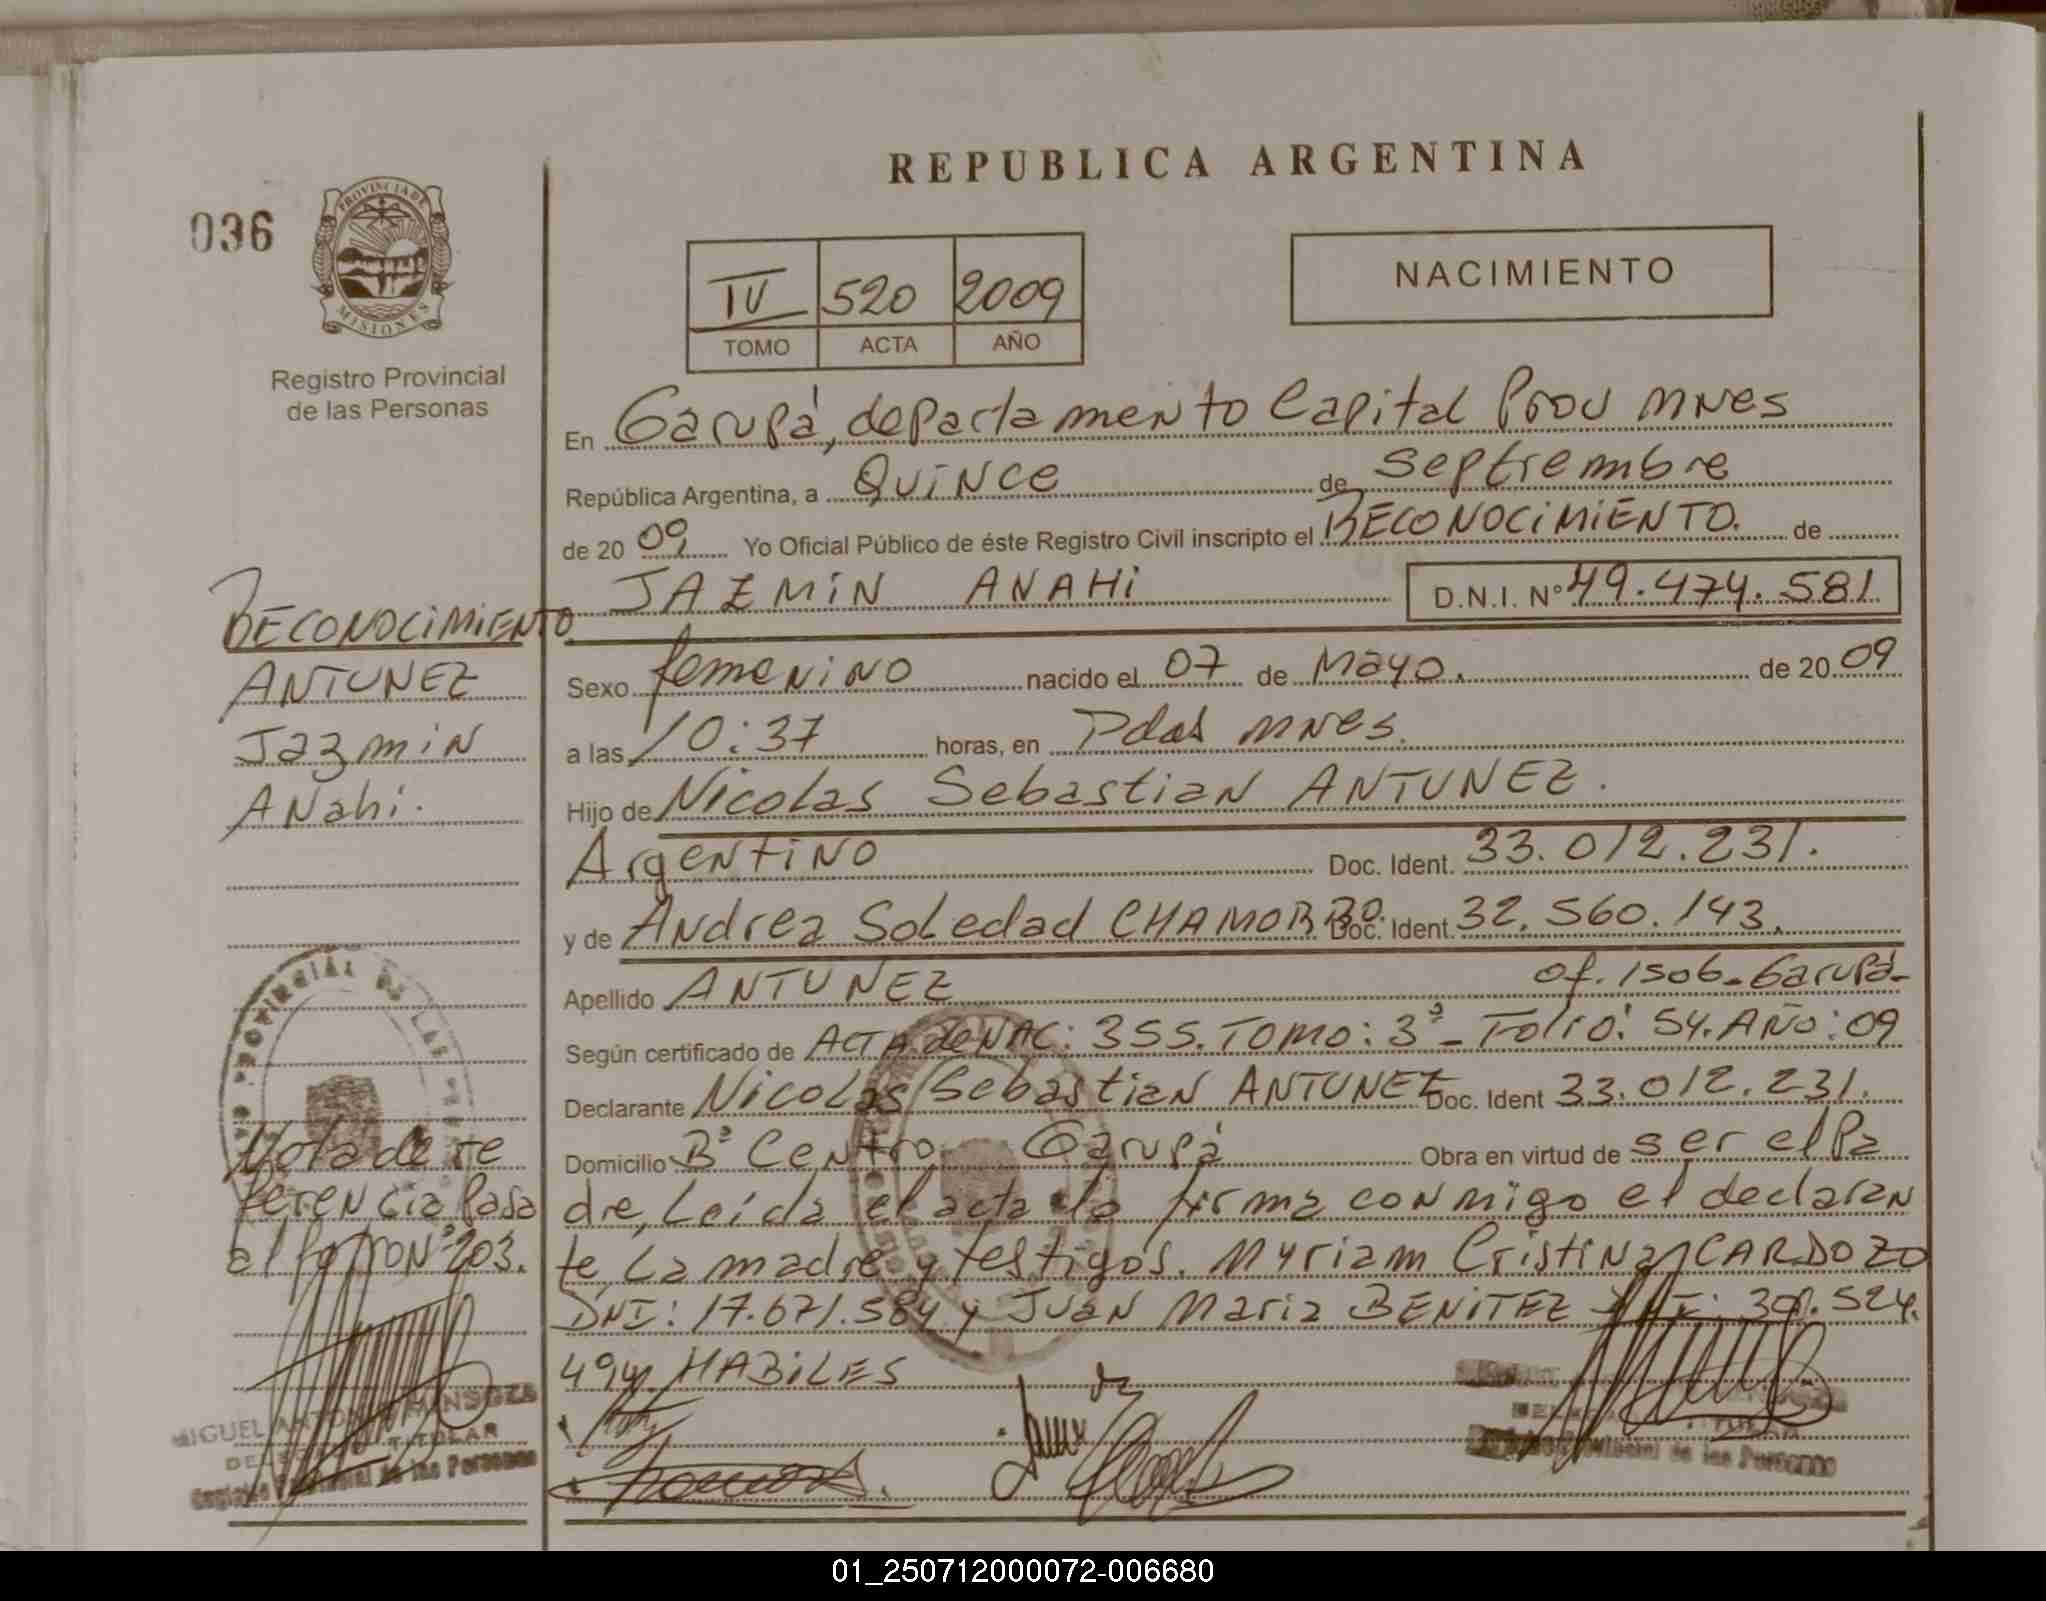 REPUBLICA ARGENTINA
036
PROVINCIA DE
MISIONES
Registro Provincial
de las Personas
IV 520 2009
TOMO ACTA AÑO
NACIMIENTO
En Garupá, departamento Capital Prov mnes
República Argentina, a Quince de septiembre
de 20 09 Yo Oficial Público de éste Registro Civil inscripto el RECONOCIMIENTO. de
JAZMIN ANAHI D.N.I. Nº 49.474.581
Sexo femenino nacido el 07 de Mayo. de 20 09
a las 10:37 horas, en Pdas mnes.
Hijo de Nicolas Sebastian ANTUNEZ.
Argentino Doc. Ident. 33.012.231.
y de Andrea Soledad CHAMORRO. Doc. Ident. 32.560.143.
Apellido ANTUNEZ of. 1506. Garupá-
Según certificado de ACTA de NAC: 355. TOMO: 3º - Folio: 54. AÑO: 09
Declarante Nicolas Sebastian ANTUNEZ Doc. Ident 33.012.231.
Domicilio Bº Centro Garupá Obra en virtud de ser el Pa
dre, Leída el acta la firma conmigo el declaran
te, La madre y testigos. Myriam Cristina CARDOZO
DNI: 17.671.584 y Juan Maria BENITEZ 30.524.
494 HABILES
RECONOCIMIENTO
ANTUNEZ
Jazmin
ANahi.
Nota de re
ferencia Pasa
al folio Nº 203.
MIGUEL MENDOZA
TITULAR
de las Personas
Provincial de las Personas
01_250712000072-006680